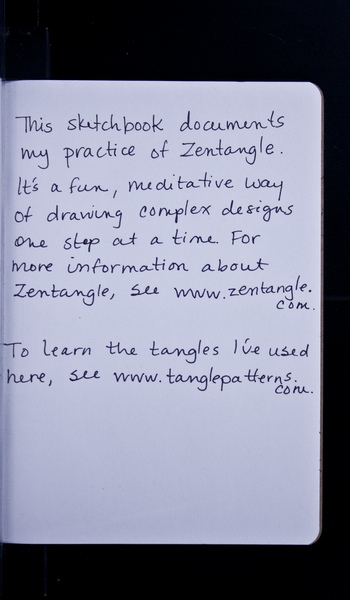 This sketchbook documents
my practice of Zentangle.
It's a fun, meditative way
of drawing complex designs
one step at a time. For
more information about
Zentangle, see www.zentangle.
com.
To learn the tangles I've used
here, see www.tanglepatterns.
com.